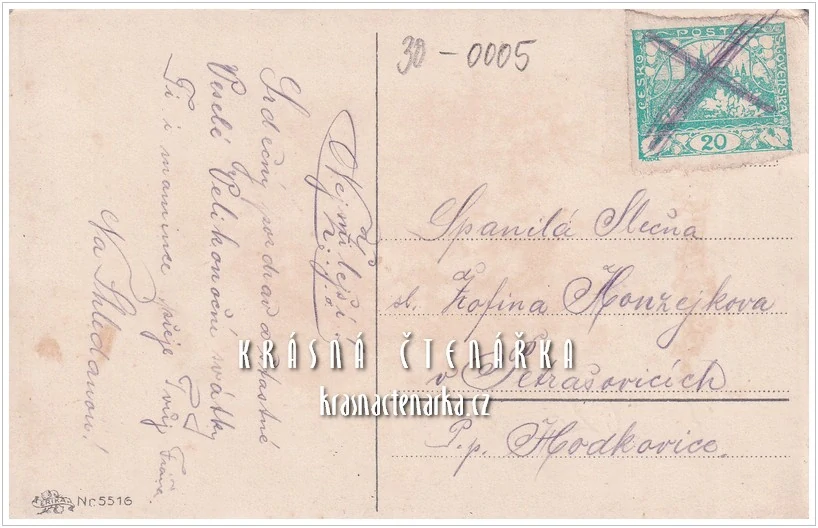 30-0005
ČESKO POŠTA SLOVENSKÁ
20
Nejmilejší
Srdečný pozdrav a šťastné
Veselé Velikonoční svátky
Ti i mamince přeje Tvůj
Na Shledanou!
Spanilá Slečna
sl. Žofina Konžejkova
v Petrašovicích
P.p. Hodkovice
KRÁSNÁ ČTENÁŘKA
krasnactenarka.cz
Nr. 5516